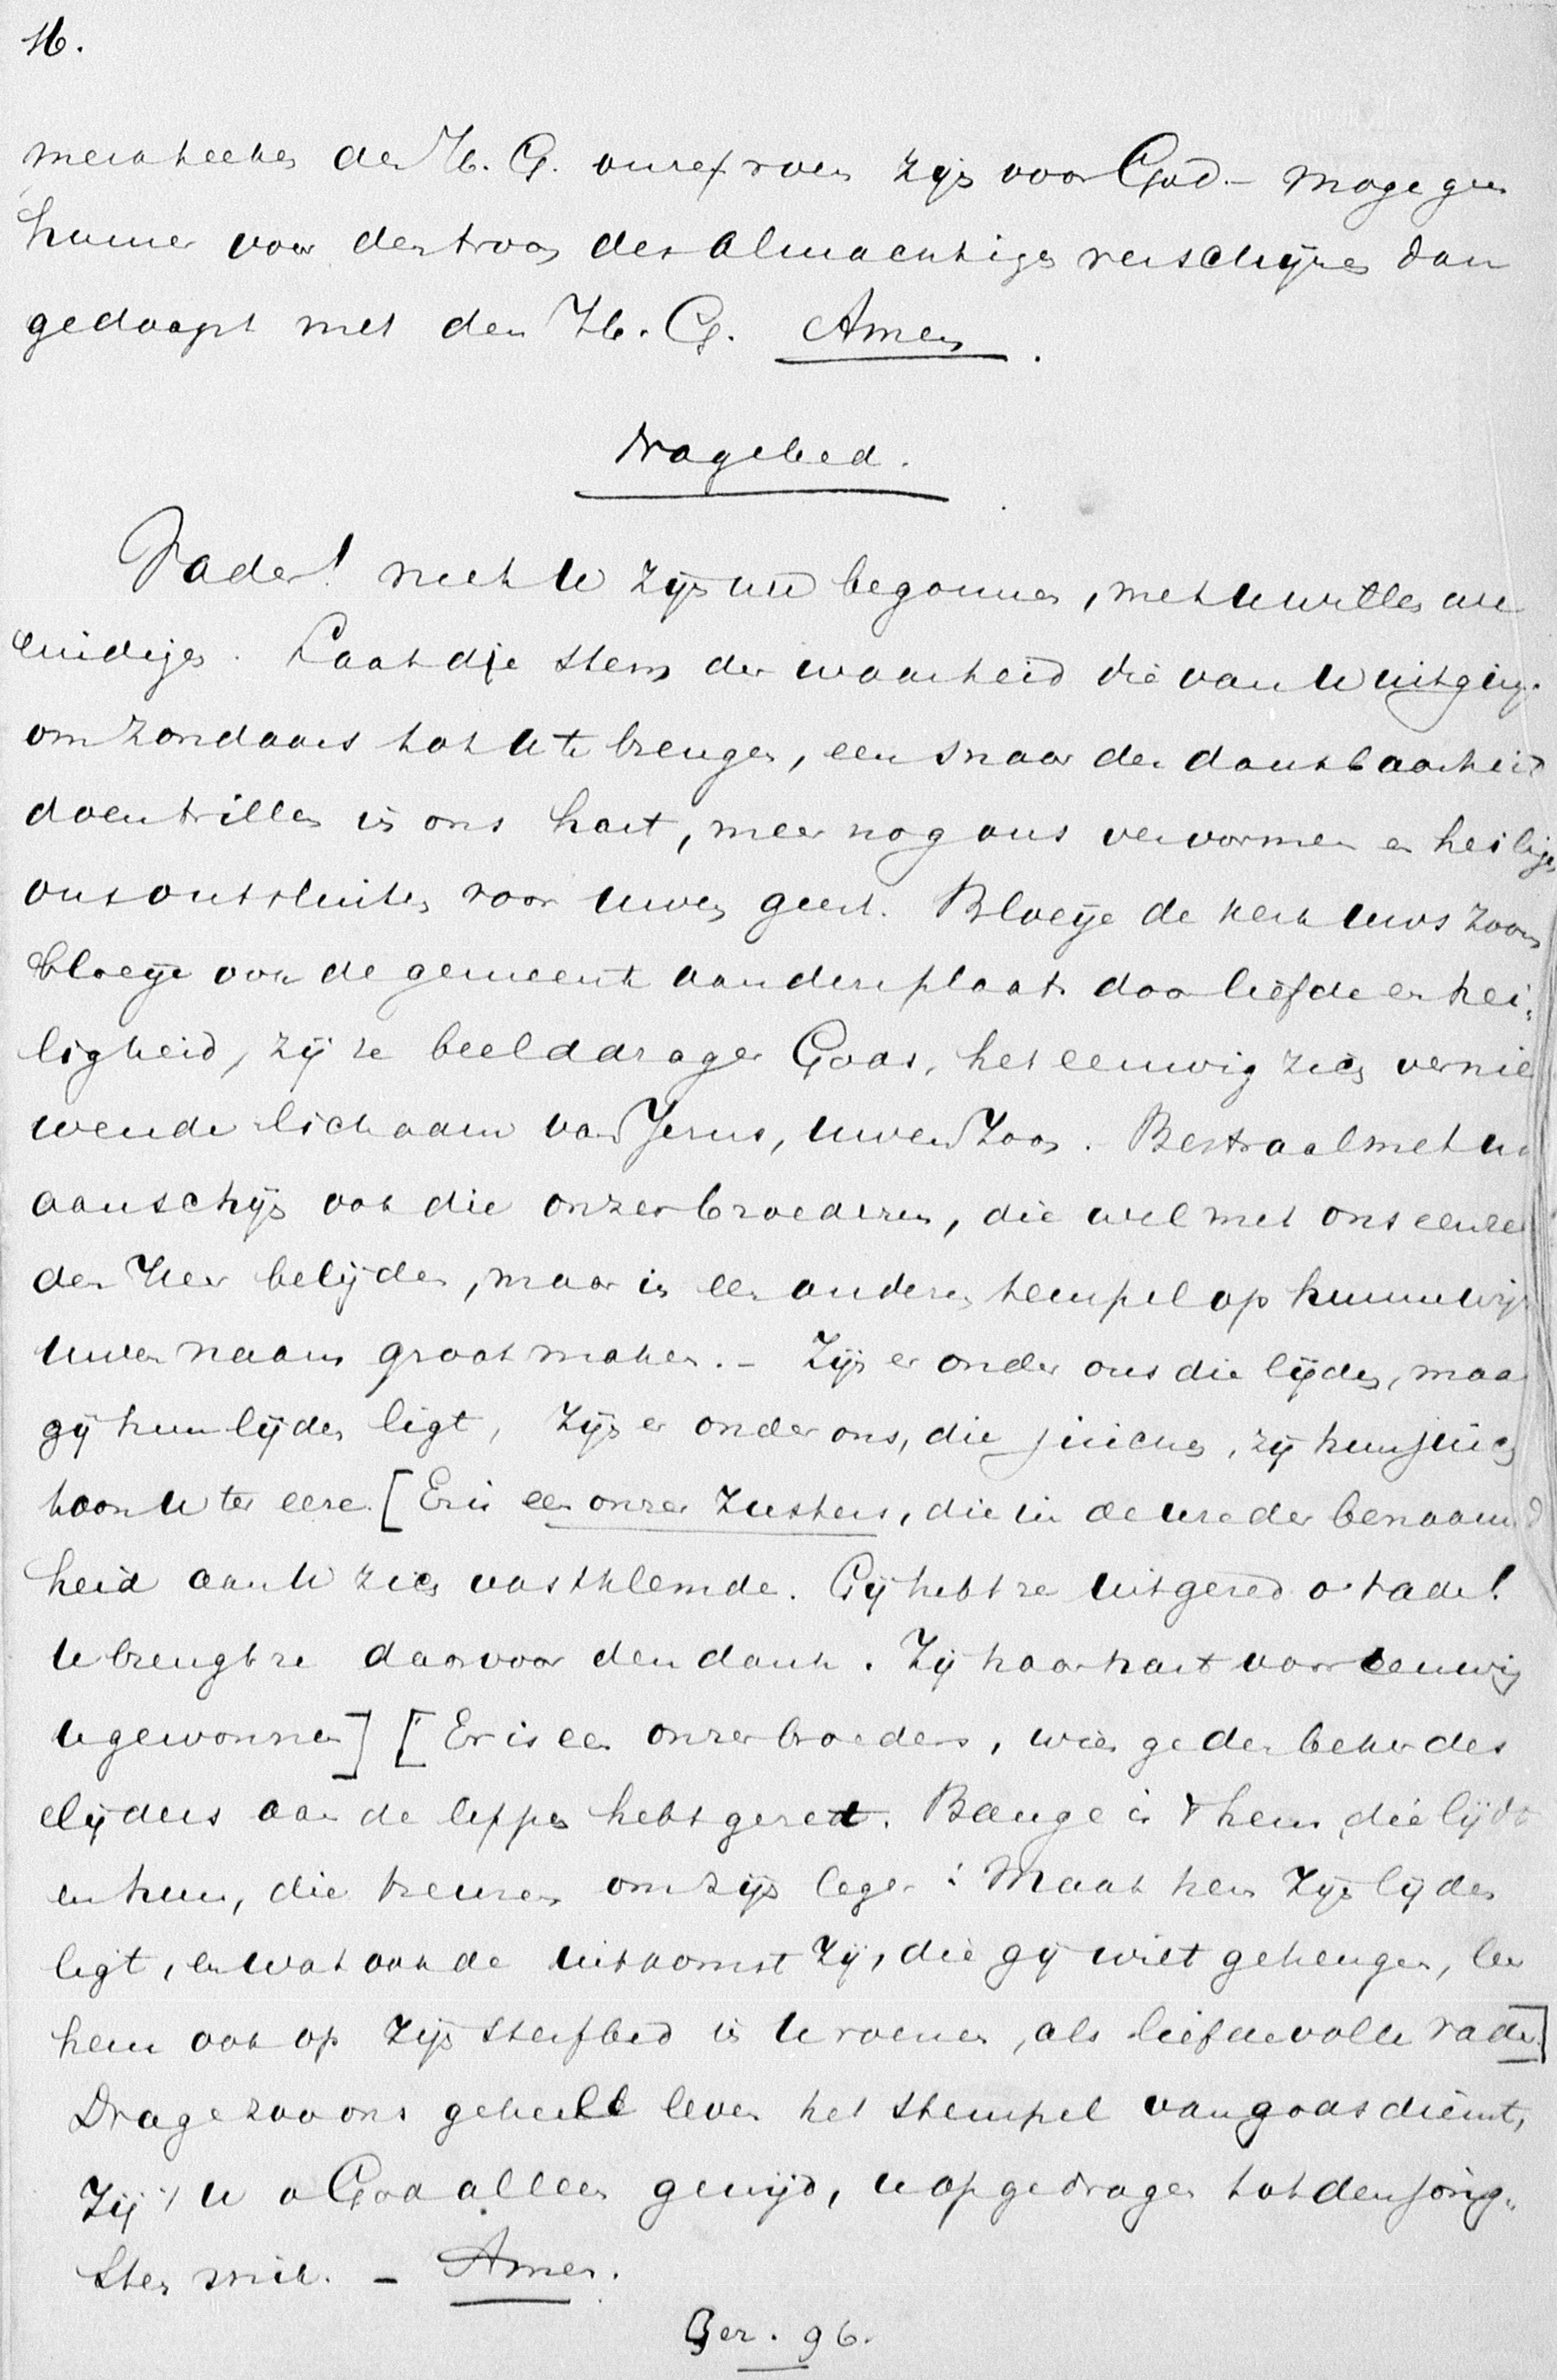 16.
merkteeken der H. G. onzer zijn voor God. - Moge geen
hunner voor den troon des Almachtigen verschijnen dan
gedoopt met den H. G. Amen.
Nagebed.
Vader! met U zijn we begonnen, met U willen we
eindigen. Laat die stem der waarheid die van U uitging
om zondaars tot U te brengen, een snaar der dankbaarheid
doen trillen in ons hart, meer nog ons vervormen en heiligen
ons ontsluiten voor uwen geest. Bloeije de kerk uws Zoons
bloeije ook de gemeente van deze plaats door liefde en hei-
ligheid, zij ze beelddrager Gods, het eeuwig zich vernieu
wende lichaam van Jezus, uwen Zoon. Bestraal met uw
aanschijn ook die onzer broederen, die wel met ons eenzelf
den Heer belijden, maar in een anderen tempel op hunne wijs
uwen naam grootmaken. - Zijn er onder ons die lijden, maak
gij hun lijden ligt, zijn er onder ons, die juichen, zij hun juich
toon U ter eere. [Er is een onzer zusters, die in de ure der benaauwd
heid aan U zich vastklemde. Gij hebt ze uitgered o Vader!
U brengt ze daarvoor den dank. Zij haar hart voor eeuwig
U gewonnen] [Er is een onzer broeders, wien ge den beker des
lijdens aan de lippen hebt gezet. Bange is 't hem, die lijdt
en hun, die treuren om zijn leger: Maak hem zijn lijden
ligt, en wat ook de uitkomst zij, die gij wilt gehengen, leer
hem ook op zijn sterfbed in U roemen, als liefdevolle vader]
Drage zoo ons geheele leven het stempel van godsdienst,
Zij 't U o God alleen gewijd, U opgedragen tot den jong-
sten snik. - Amen.
Gez. 96.